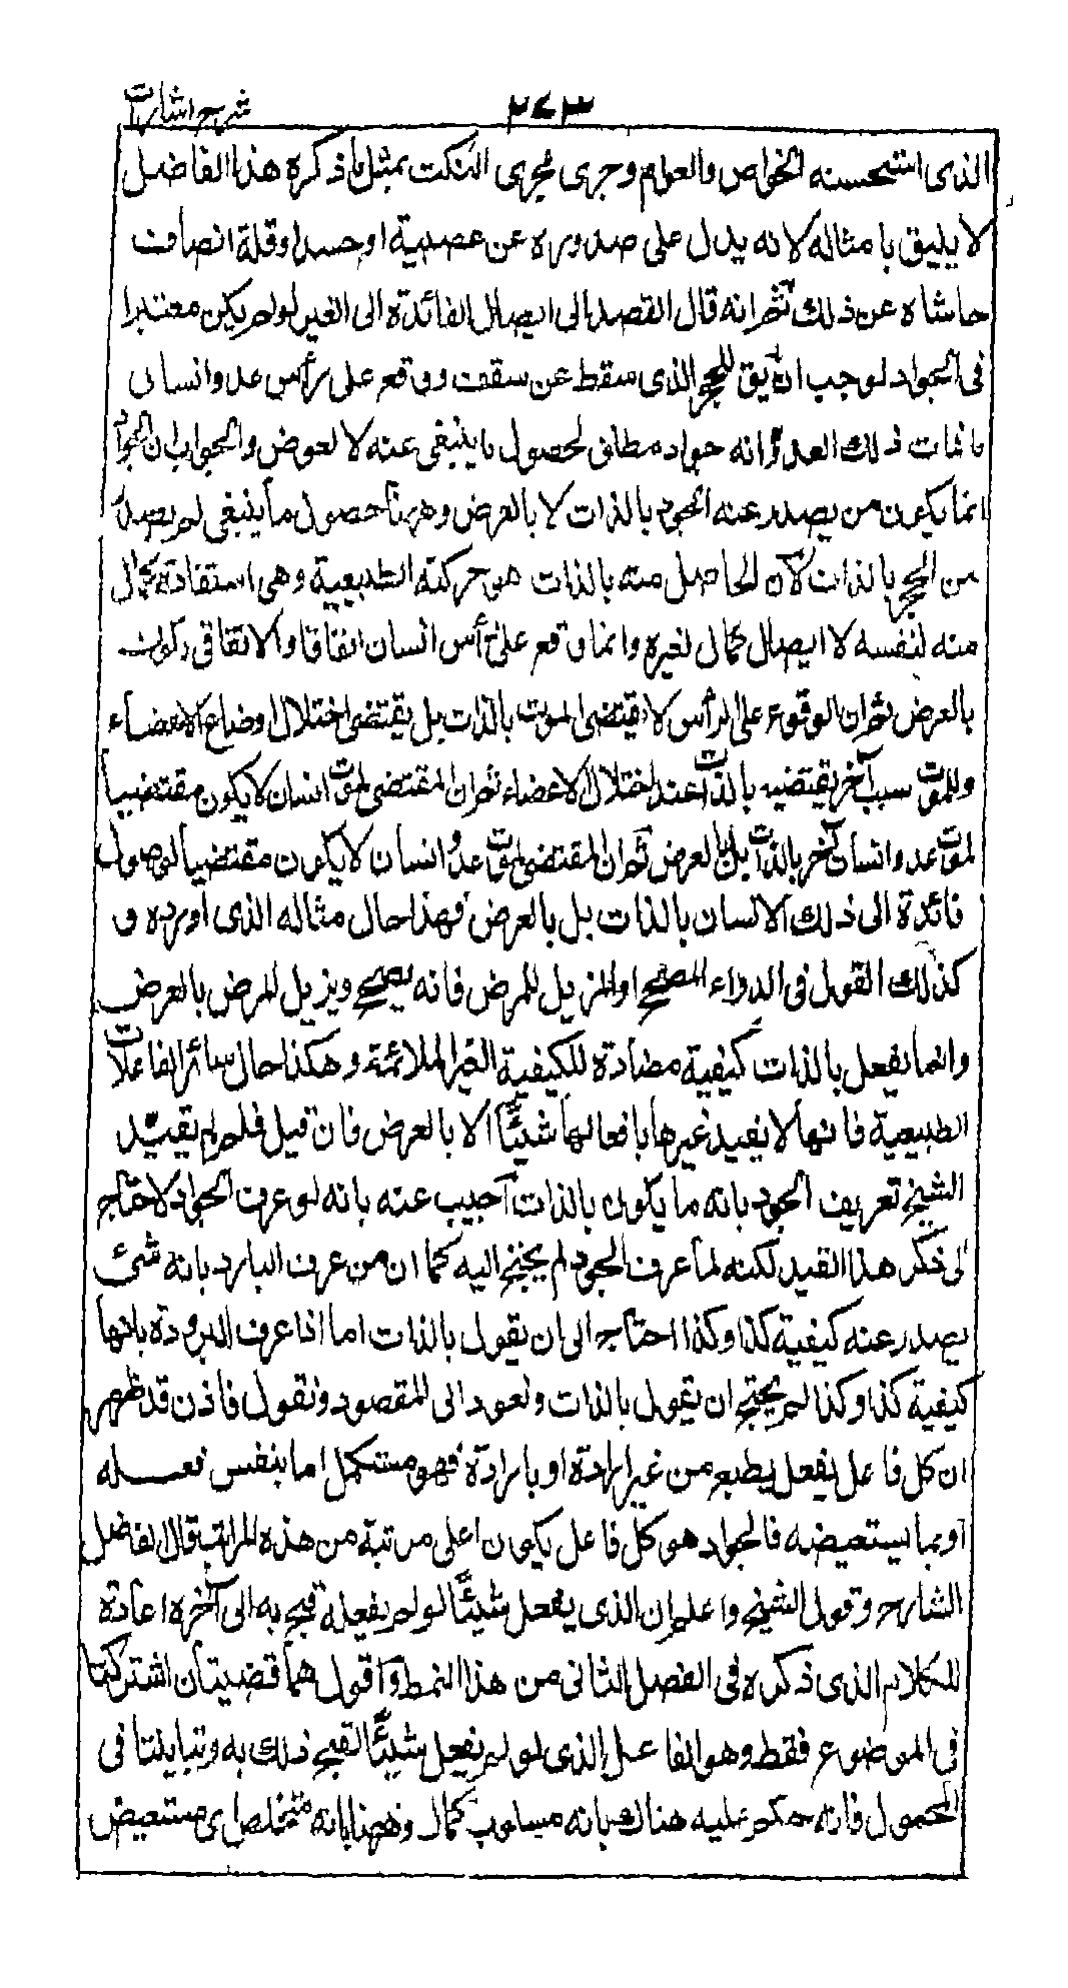 شرح اشارات
٢٧٣
الذى استحسنه الخواص والعوام وجرى مجرى النكت بمثل ما ذكره هذا الفاضل
لا يليق بامثاله لانه يدل على صدوره عن عصبية او حسد او قلة انصاف
حاشاه عن ذلك ثم انه قال القصد الى ايصال الفائدة الى الغير لو لم يكن معتبرا
فى الجواد لوجب ان يق للحجر الذى سقط عن سقف ووقع على رأس عدو انسان
فمات ذلك العدو انه جواد مطلق لحصول ما ينبغى عنه لا لعوض والجواب ان الجواد
انما يكون من يصدر عنه الجود بالذات لا بالعرض وههنا حصول ما ينبغى لم يصدر
من الحجر بالذات لان الحاصل منه بالذات هو حركته الطبيعية وهى استفادة كمال
منه لنفسه لا ايصال كمال لغيره وانما وقع على رأس انسان اتفاقا والاتفاقى يكون
بالعرض ثم ان الوقوع على الرأس لا يقتضى الموت بالذات بل يقتضى اختلال اوضاع الاعضاء
وللموت سبب آخر يقتضيه بالذات عند اختلال الاعضاء ثم ان المقتضى لموت انسان لا يكون مقتضيا
لموت عدو انسان آخر بالذات بل بالعرض ثم ان المقتضى لموت عدو انسان لا يكون مقتضيا لوصول
فائدة الى ذلك الانسان بالذات بل بالعرض فهذا حال مثاله الذى اورده و
كذلك القول فى الدواء المصحح او المزيل للمرض فانه يصحح ويزيل المرض بالعرض
وانما يفعل بالذات كيفية مضادة للكيفية الغير الملائمة وهكذا حال سائر الفاعلات
الطبيعية فانها لا يفيد غيرها بافعالها شيئا الا بالعرض فان قيل فلم لم يقيّد
الشيخ تعريف الجود بانه ما يكون بالذات اجيب عنه بانه لو عرف الجواد لاحتاج
الى ذكر هذا القيد لكنه لما عرف الجود لم يحتج اليه كما ان من عرف البارد بانه شئ
يصدر عنه كيفية كذا وكذا احتاج الى ان يقول بالذات اما اذا عرف البرودة بانها
كيفية كذا وكذا لم يحتج ان يقول بالذات ونعود الى المقصود ونقول فاذن قد ظهر
ان كل فاعل يفعل بطبع من غير ارادة او بارادة فهو مستكمل اما بنفس فعله
او بما يستعيضه فالجواد هو كل فاعل يكون اعلى مرتبة من هذه المراتب قال الفاضل
الشارح وقول الشيخ واعلم ان الذى يفعل شيئا لو لم يفعله قبح به الى آخره اعادة
للكلام الذى ذكره فى الفصل الثانى من هذا النمط واقول هما قضيتان اشتركتا
فى الموضوع فقط وهو الفاعل الذى لو لم يفعل شيئا لقبح ذلك به وتباينتا فى
المحمول فانه حكم عليه هناك بانه مسلوب كمال وههنا بانه متخلص اى مستعيض